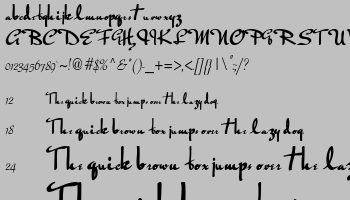 abcdefghijklmnopqrstuvwxyz
ABCDEFGHIJKLMNOPQRSTUV
0123456789~!@#$%^&*()-_+=>,<[]{}|\:;/?
12 The quick brown fox jumps over the lazy dog
18 The quick brown fox jumps over the lazy dog
24 The quick brown fox jumps over the lazy